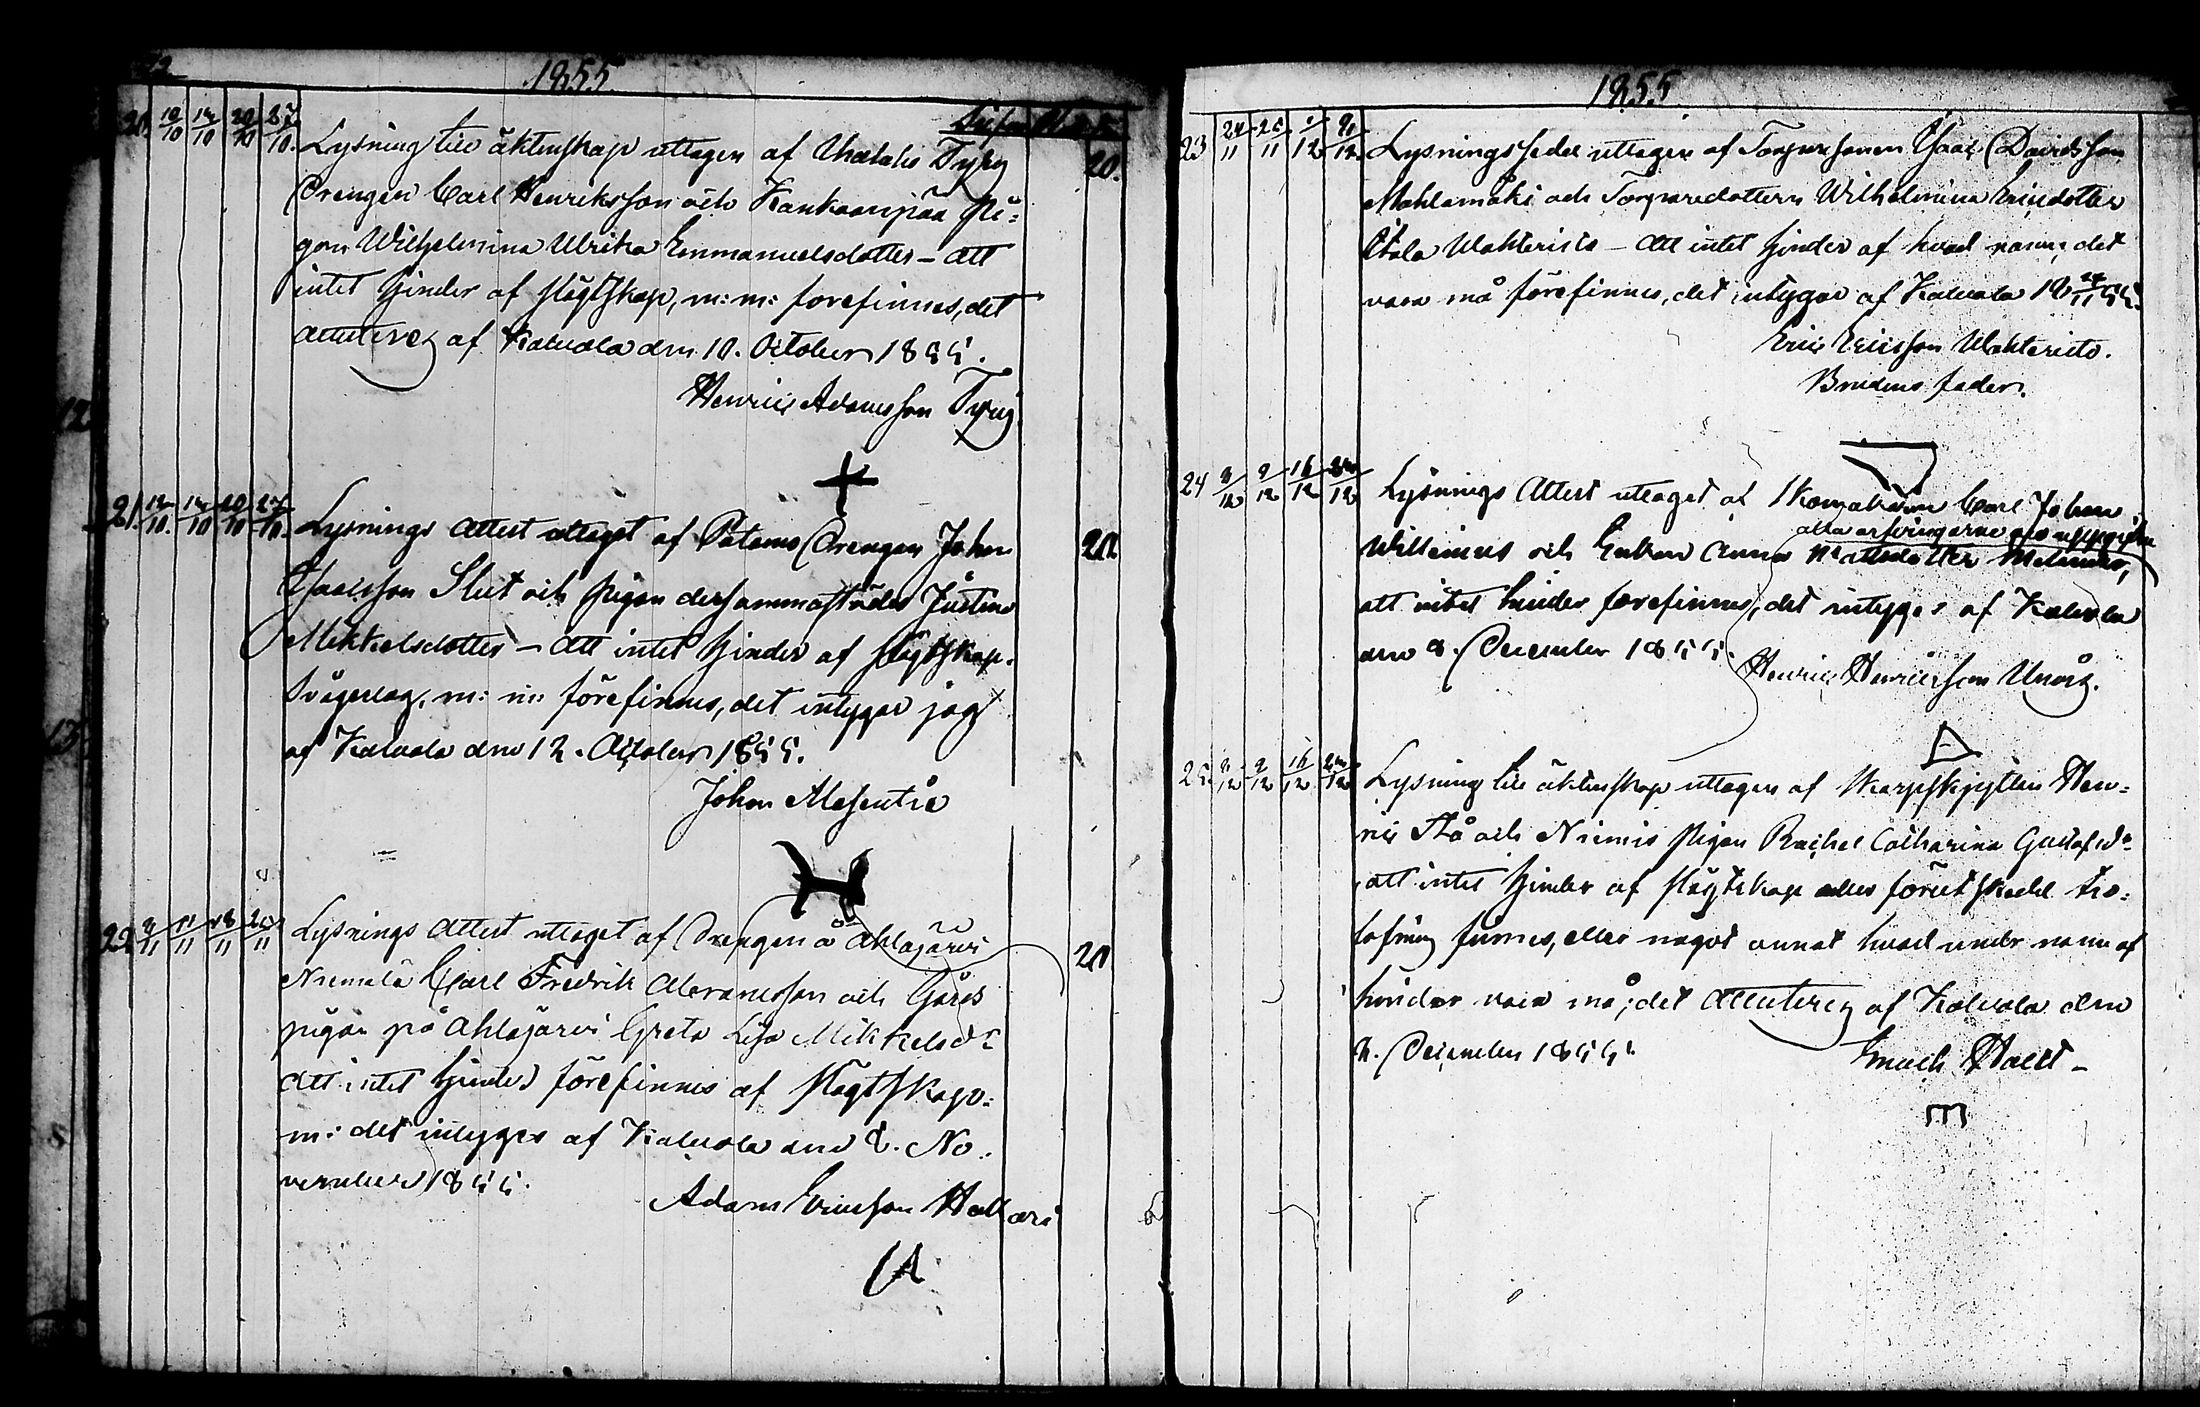 1855
20. 10/10 14/10 20/10 27/10. Lysning till äktenskap uttagen af Ahlalis Tyry
Drengen Carl Henriksson och Kankaanpää Pi=
gan Wilhelmina Ulrika Emmanuelsdotter – att
intet hinder af slägtskap, m: m: forefinnes, det
attesteras af Kalvola den 10. October 1855.
Henric Adamsson Tyry
20.
21. 12/10. 14/10 20/10 27/10. Lysnings attest uttaget af Drengen Johan
Isaaksson Slut och Pigan dersammastädes Justina
Mikkelsdotter – att intet hinder af slägtskap.
Svågerlag, m: m: förefinnes, det intygar jag
af Kalvola den 12. October 1855.
Johan Alesentie
20.
22 8/11 11/11 18/11 25/11 Lysnings Attest uttaget af Drengen å Ahlajärvi
Niemelä Carl Fredrik Abramsson och Gårds
pigan på Ahlajärvi Greta Lisa Mikkelsdr
att intet hinder förefinnes af slägtskap
m: det intygas af Kalvola den 8. No=
vember 1855.
Adam Ericsson Hakari
20
1855
23 24/11 25/11 2/12 9/12 Lysningssedel uttagen af Torparsonen Isaac Davidsson
Mahlamäki och Torparedottern Wilhelmina Ericsdotter
Wahteristo – att intet hinder af hvad namn det
vara må förefinnes, det intygar af Kalvola 18 24/11 55.
Eric Ericsson Wahteristo.
Brudens fader.
24 8/12 9/12 16/12 23/12 Lysnings Attest uttaget af Skomakaren Carl Johan
Willenius och Enkan Anna Mattsdotter
att intet hinder forefinnes, det intygas af Kalvola
den 8. December 1855.
Henric Henricsson
25. 8/12 9/12 16/12 23/12 Lysning till äktenskap uttagen af Skarpskytten Hen=
ric Stå och Niemis Pigan Rachel Catharina Gustafsdr
att intet hinder af slägtskap eller förut skedd tro=
lofning finnes, eller något annat hvad under namn af
hinder vara må; det attesteras af Kalvola den
8. December 1855.
Enoch